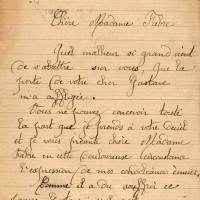 Chère Madame Fabre
Quel malheur si grand vient
de s'abattre sur vous. Que la
perte de votre cher Gustave
m'a affligée.
Vous ne pouvez concevoir toute
la part que je prends à votre deuil
et je vous présente chère Madame
Fabre en cette douloureuse circonstance
l'expression de mes condoléances émues.
Comme il a dû souffrir ce